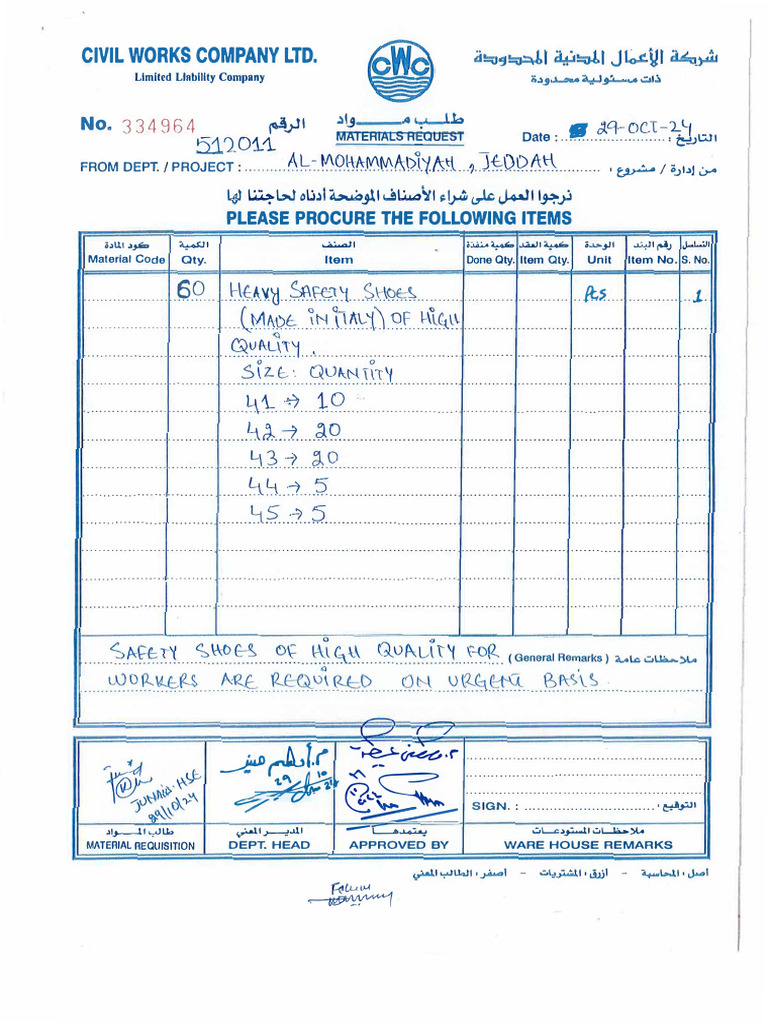 CIVIL WORKS COMPANY LTD.
Limited Liability Company
CWC
شركة الأعمال المدنية المحدودة
ذات مسئولية محدودة
No. 334964 الرقم
512011
طلب مواد
MATERIALS REQUEST
Date : 29-OCT-24 التاريخ :
FROM DEPT. / PROJECT : AL-MOHAMMADIYAH , JEDDAH من إدارة / مشروع :
نرجوا العمل على شراء الأصناف الموضحة أدناه لحاجتنا لها
PLEASE PROCURE THE FOLLOWING ITEMS
كود المادة الكمية الصنف كمية منفذة كمية العقد الوحدة رقم البند التسلسل
Material Code Qty. Item Done Qty. Item Qty. Unit Item No. S. No.
60 HEAVY SAFETY SHOES Pcs 1
(MADE IN ITALY) OF HIGH
QUALITY.
SIZE: QUANTITY
41 → 10
42 → 20
43 → 20
44 → 5
45 → 5
SAFETY SHOES OF HIGH QUALITY FOR (General Remarks) ملاحظات عامة
WORKERS ARE REQUIRED ON URGENT BASIS
JUNAID-HSE
29/10/24
29 10
SIGN. : التوقيع :
طالب المواد المدير المعني يعتمدها ملاحظات المستودعات
MATERIAL REQUISITION DEPT. HEAD APPROVED BY WARE HOUSE REMARKS
أصل : المحاسبة - أزرق : المشتريات - أصفر : الطالب المعني